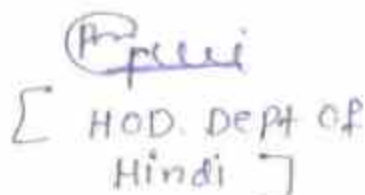 [ HOD. Dept of
Hindi ]